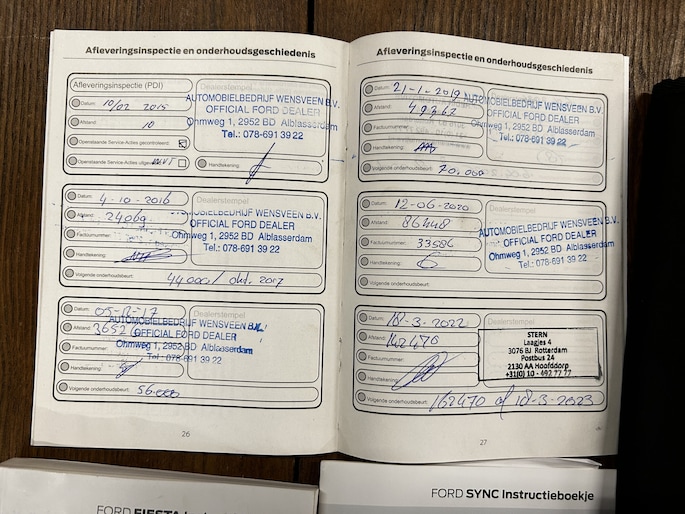 Afleveringsinspectie en onderhoudsgeschiedenis
Afleveringsinspectie (PDI)
Datum: 10/02 2015
Afstand: 10
Openstaande Service-Acties gecontroleerd:
Openstaande Service-Acties uitgevoerd:
Dealerstempel
AUTOMOBIELBEDRIJF WENSVEEN B.V.
OFFICIAL FORD DEALER
Ohmweg 1, 2952 BD Alblasserdam
Tel.: 078-691 39 22
Handtekening:
Datum: 4-10-2016
Afstand: 24069
Factuurnummer:
Handtekening:
Volgende onderhoudsbeurt: 44000/ okt. 2017
Dealerstempel
AUTOMOBIELBEDRIJF WENSVEEN B.V.
OFFICIAL FORD DEALER
Ohmweg 1, 2952 BD Alblasserdam
Tel.: 078-691 39 22
Datum:
Afstand:
Factuurnummer:
Handtekening:
Volgende onderhoudsbeurt: 56.000
Dealerstempel
AUTOMOBIELBEDRIJF WENSVEEN B.V.
OFFICIAL FORD DEALER
Ohmweg 1, 2952 BD Alblasserdam
Tel.: 078-691 39 22
26
Afleveringsinspectie en onderhoudsgeschiedenis
Datum: 21-1-2019
Afstand: 49262
Factuurnummer:
Handtekening:
Volgende onderhoudsbeurt: 70.000
AUTOMOBIELBEDRIJF WENSVEEN B.V.
OFFICIAL FORD DEALER
Ohmweg 1, 2952 BD Alblasserdam
Tel.: 078-691 39 22
Datum: 12-06-2020
Afstand: 86448
Factuurnummer: 33586
Handtekening:
Volgende onderhoudsbeurt:
Dealerstempel
AUTOMOBIELBEDRIJF WENSVEEN B.V.
OFFICIAL FORD DEALER
Ohmweg 1, 2952 BD Alblasserdam
Tel.: 078-691 39 22
Datum: 18-3-2022
Afstand: 142470
Factuurnummer:
Handtekening:
Volgende onderhoudsbeurt: 162470 of 18-3-2023
Dealerstempel
STERN
Laagjes 4
3076 BJ Rotterdam
Postbus 24
2130 AA Hoofddorp
+31(0) 10 - 492 77 77
27
FORD FIESTA
FORD SYNC Instructieboekje